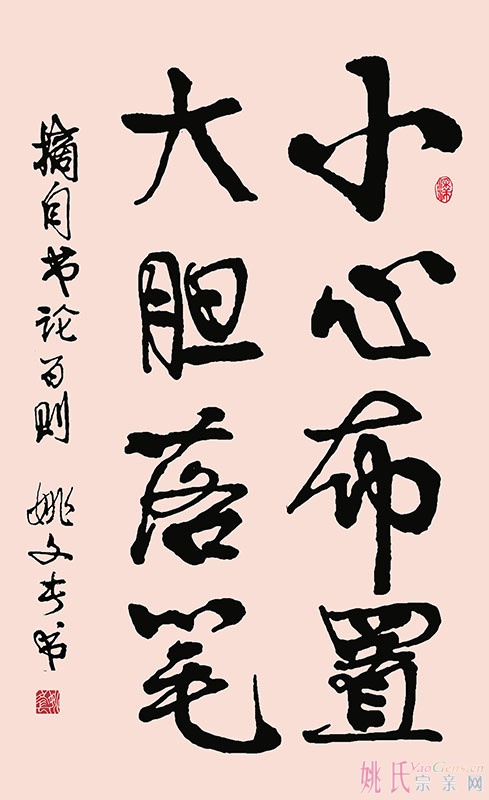 小心布置
大胆落笔
摘自书论百则 姚文书
姚氏宗亲网
YaoGens.cn